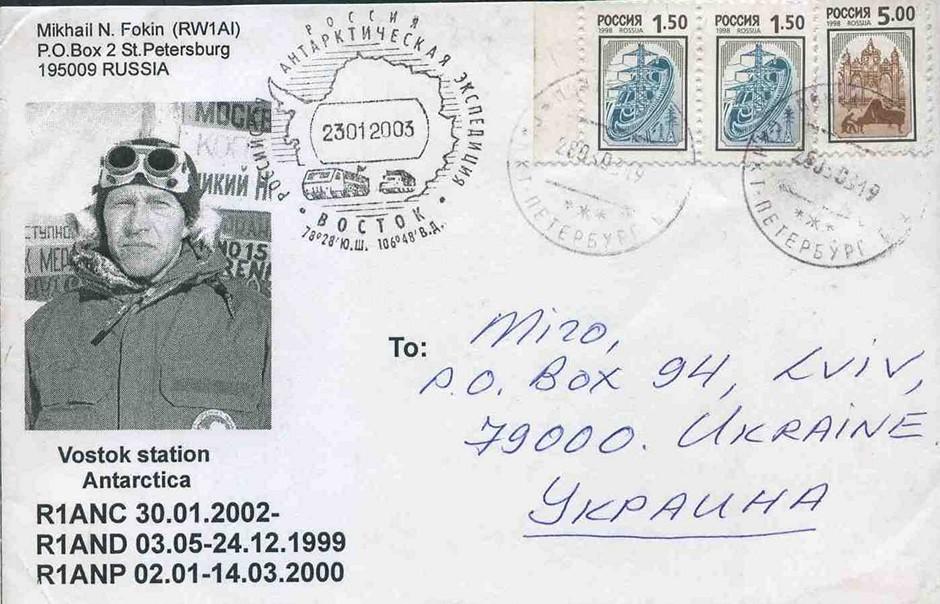 Mikhail N. Fokin (RW1AI)
P.O.Box 2 St.Petersburg
195009 RUSSIA
РОССИЯ
РОССИЙСКАЯ АНТАРКТИЧЕСКАЯ ЭКСПЕДИЦИЯ
23012003
• ВОСТОК •
78°28'Ю.Ш. 106°48'В.Д.
РОССИЯ 1.50
1998 ROSSIJA
РОССИЯ 1.50
1998 ROSSIJA
РОССИЯ 5.00
1998 ROSSIJA
МОСКВ
КИЙ
МЕР
NO 15
To:
Miro,
P.O. Box 94, Lviv,
79000. UKRAINE
УКРАИНА
Vostok station
Antarctica
R1ANC 30.01.2002-
R1AND 03.05-24.12.1999
R1ANP 02.01-14.03.2000